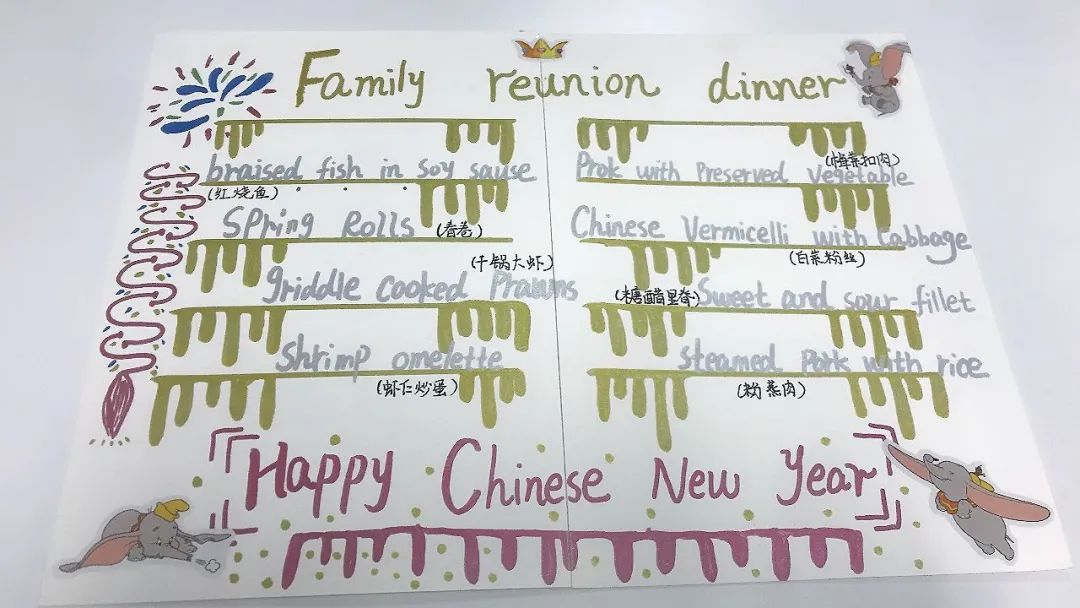 Family reunion dinner
braised fish in soy sause
(红烧鱼)
Spring Rolls (春卷)
(干锅大虾)
griddle cooked Prawns
Shrimp omelette
(虾仁炒蛋)
(梅菜扣肉)
Prok with Preserved Vegetable
Chinese Vermicelli with Cabbage
(白菜粉丝)
(糖醋里脊) Sweet and sour fillet
steamed Pork with rice
(粉蒸肉)
Happy Chinese New Year